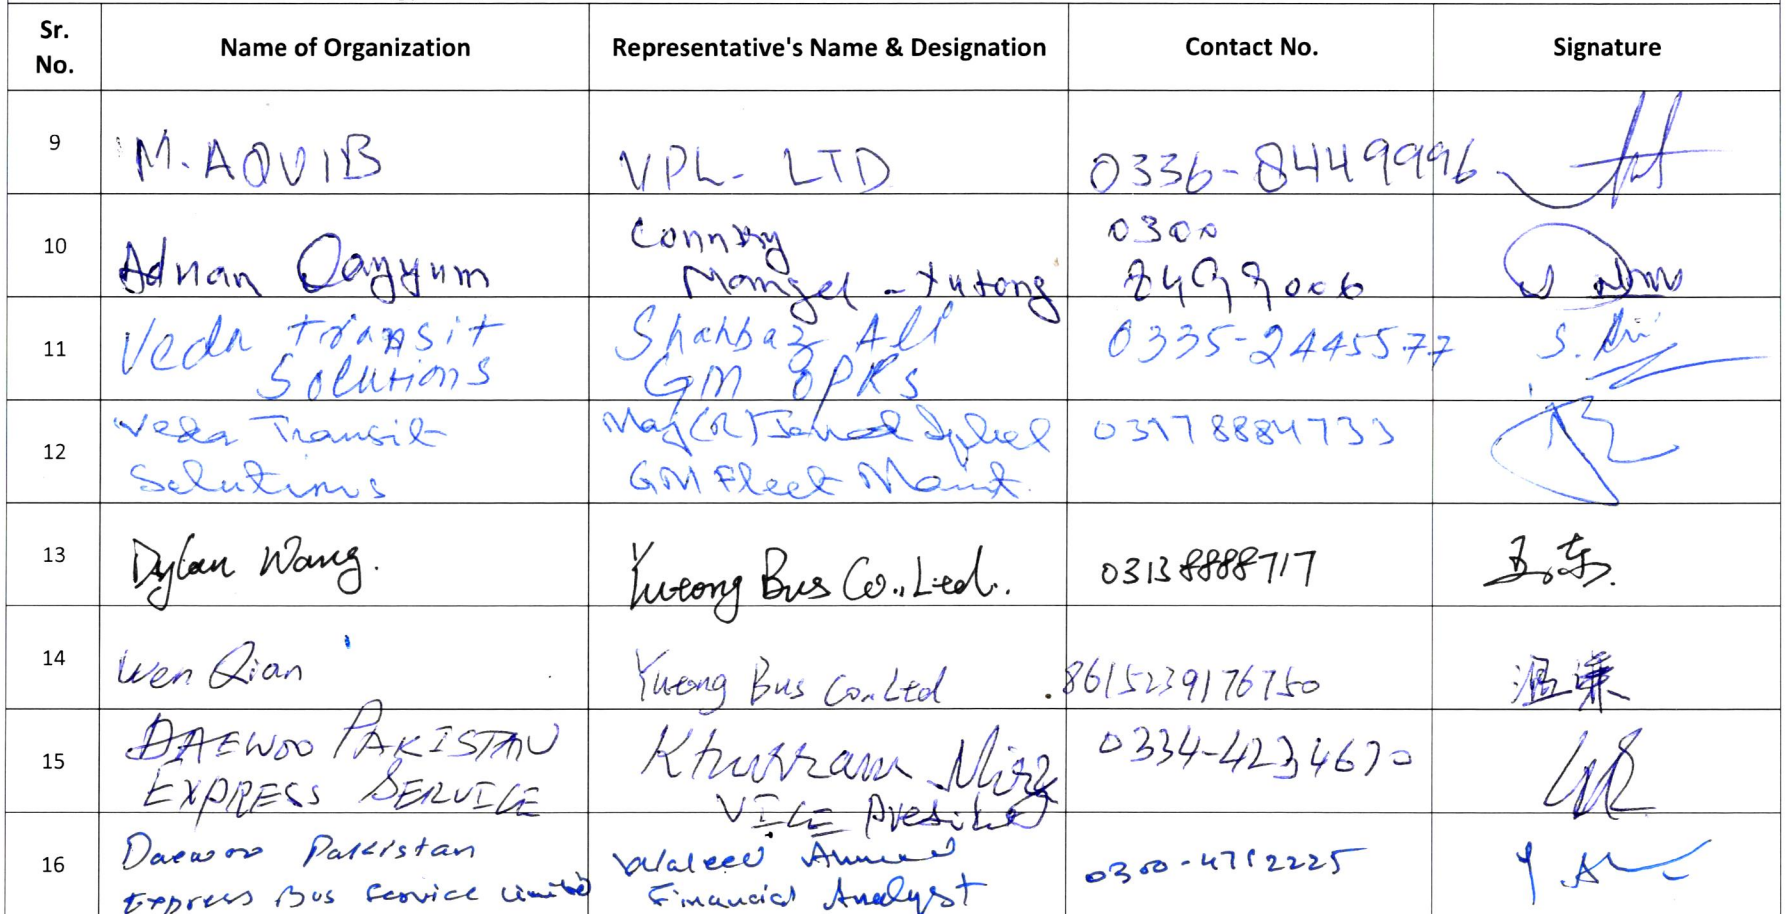 Sr. No.
Name of Organization
Representative's Name & Designation
Contact No.
Signature
9
M. AQVIB
VPL. LTD
0336-8449996
10
Adnan Qayyum
Country
Manger - Yutong
0300
8499006
11
Veda Transit
Solutions
Shahbaz Ali
GM OPRs
0335-2445577
S. Ali
12
Veda Transit
Solutions
Maj (R) Javed Iqbal
GM Fleet Maint.
03178884733
13
Dylan Wang.
Yutong Bus Co., Ltd.
03138888717
14
Wen Qian
Yutong Bus Co. Ltd
8615239176750
15
DAEWOO PAKISTAN
EXPRESS SERVICE
Khurram Mirza
VICE President
0334-4234670
16
Daewoo Pakistan
Express Bus Service Limited
Waleed Ahmed
Financial Analyst
0300-4712225